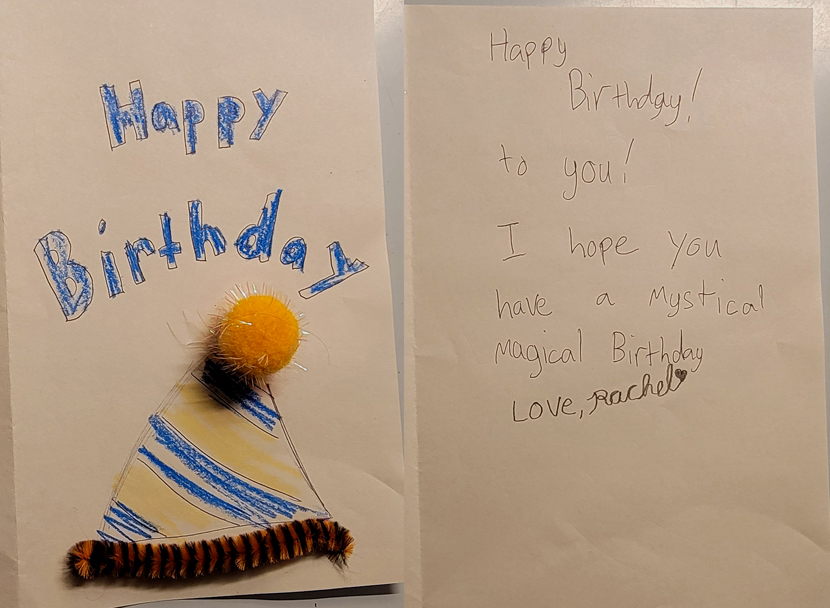 Happy
Birthday
Happy
Birthday!
to you!
I hope you
have a mystical
magical Birthday
LOVE, Rachel